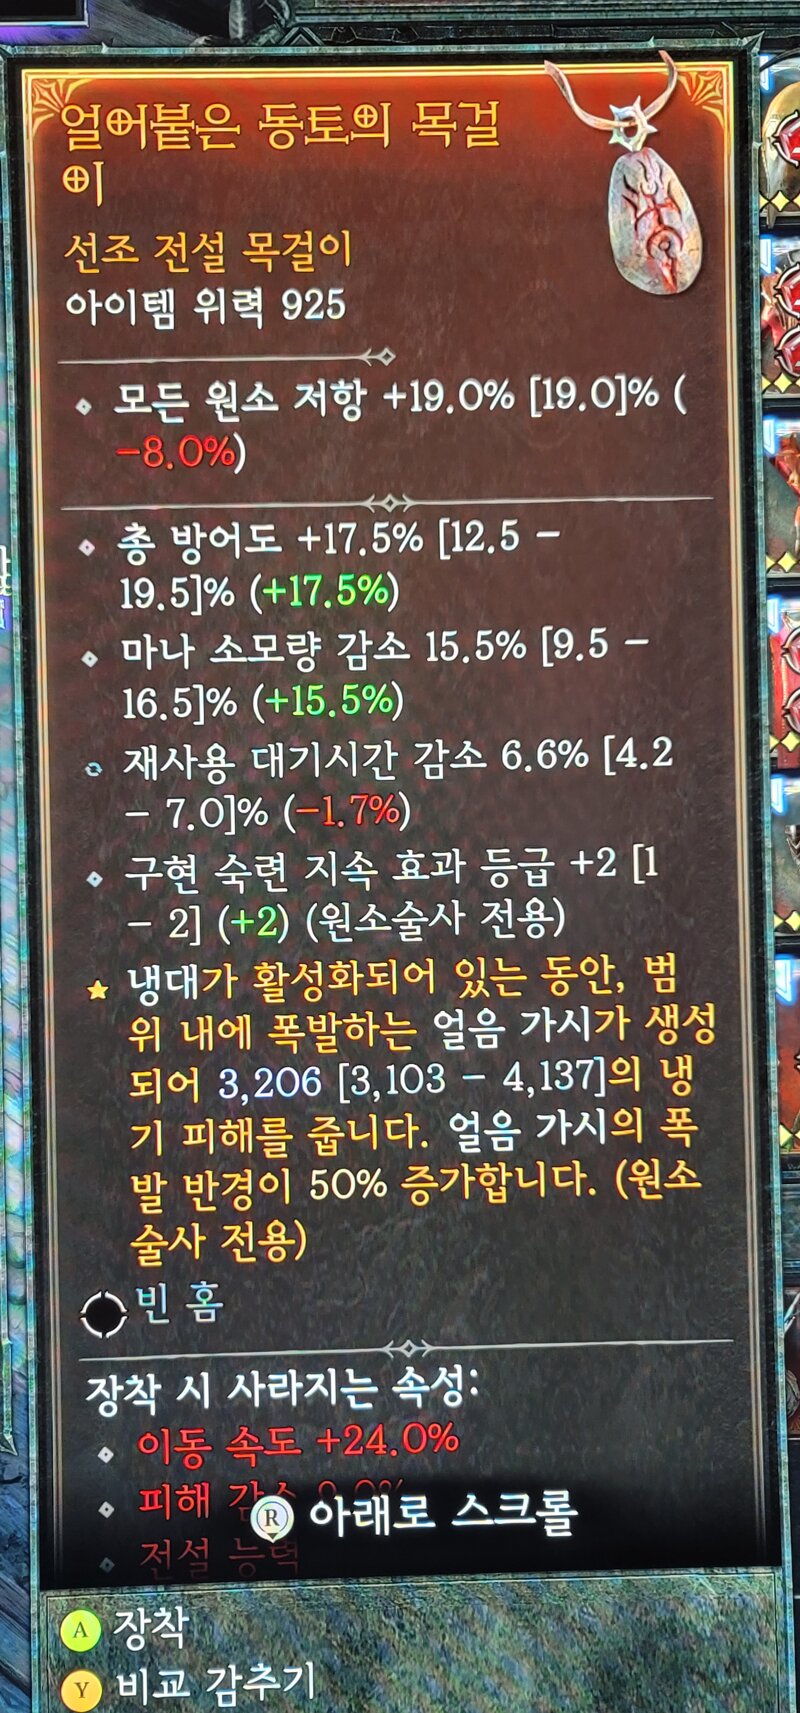 얼어붙은 동토의 목걸
이
선조 전설 목걸이
아이템 위력 925
모든 원소 저항 +19.0% [19.0]% (
-8.0%)
총 방어도 +17.5% [12.5 -
19.5]% (+17.5%)
마나 소모량 감소 15.5% [9.5 -
16.5]% (+15.5%)
재사용 대기시간 감소 6.6% [4.2
- 7.0]% (-1.7%)
구현 숙련 지속 효과 등급 +2 [1
- 2] (+2) (원소술사 전용)
냉대가 활성화되어 있는 동안, 범
위 내에 폭발하는 얼음 가시가 생성
되어 3,206 [3,103 - 4,137]의 냉
기 피해를 줍니다. 얼음 가시의 폭
발 반경이 50% 증가합니다. (원소
술사 전용)
빈 홈
장착 시 사라지는 속성:
이동 속도 +24.0%
피해 감소
R 아래로 스크롤
전설 능력
A 장착
Y 비교 감추기